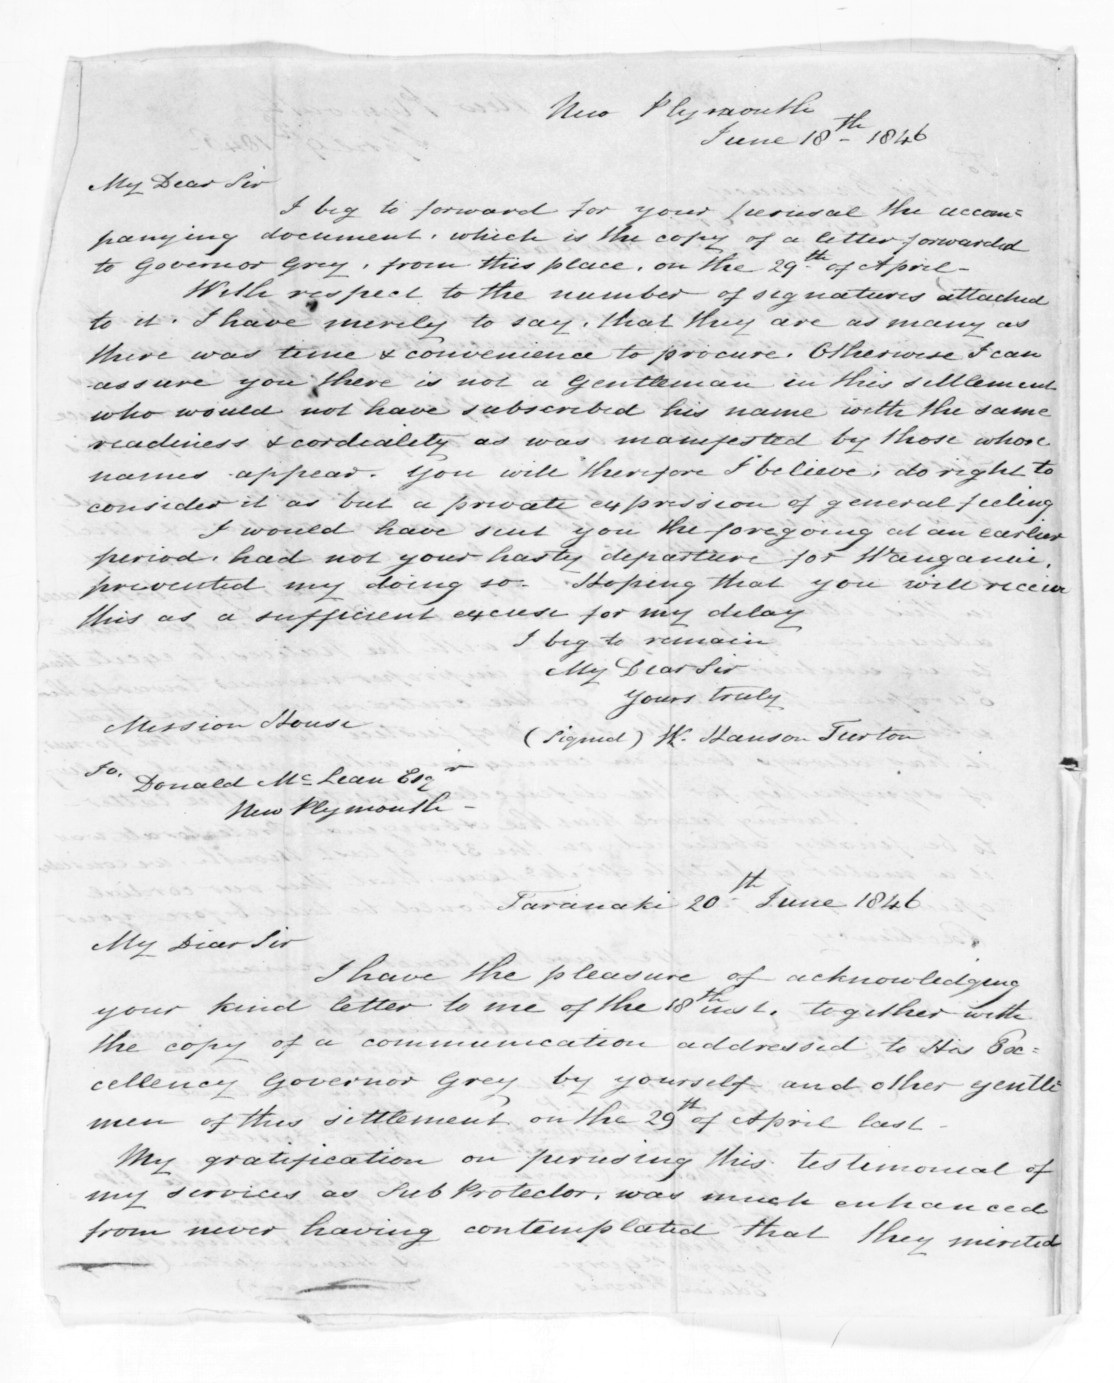 New Plymouth
June 18th 1846
My Dear Sir
I beg to forward for your perusal the accom=
panying document, which is the copy of a letter forwarded
to Governor Grey, from this place, on the 29th of April -
With respect to the number of signatures attached
to it. I have merely to say, that they are as many as
there was time & convenience to procure. Otherwise I can
assure you there is not a Gentleman in this settlement
who would not have subscribed his name with the same
readiness & cordiality as was manifested by those whose
names appear. You will therefore I believe, do right to
consider it as but a private expression of general feeling
I would have sent you the foregoing at an earlier
period, had not your hasty departure for Wanganui,
prevented my doing so. Hoping that you will receive
this as a sufficient excuse for my delay
I beg to remain
My Dear Sir
Yours truly
(Signed) W. Hanson Turton
Mission House
To, Donald McLean Esqr
New Plymouth -
Taranaki 20th June 1846
My Dear Sir
I have the pleasure of acknowledging
your kind letter to me of the 18th inst, together with
the copy of a communication addressed to His Ex=
cellency Governor Grey by yourself and other gentle
men of this settlement on the 29th of April last -
My gratification on perusing this testimonial of
my services as Sub Protector, was much enhanced
from never having contemplated that they merited